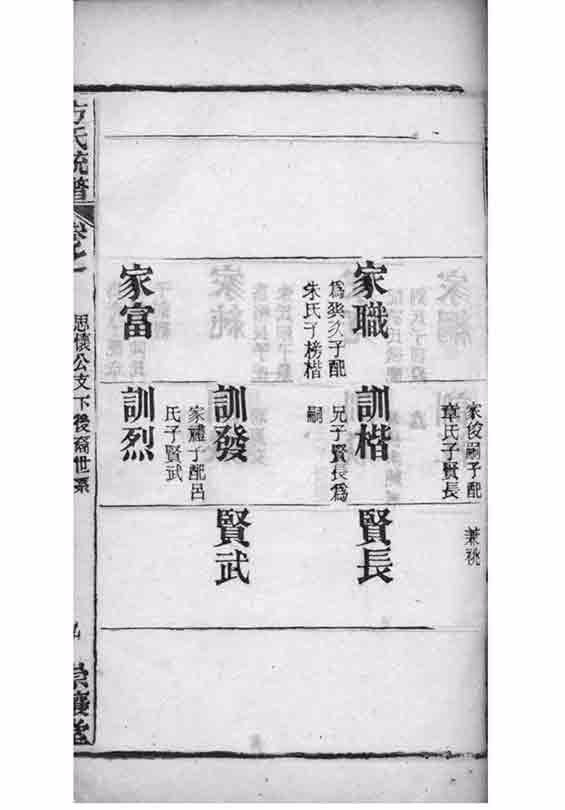 家俊嗣子配
章氏子賢長
兼祧
家職
為癸次子配
朱氏子榜楷
訓楷
兄子賢長為
嗣
賢長
訓發
家禮子配呂
氏子賢武
賢武
家富
訓烈
方氏統譜
卷之一
思懷公支下後裔世系
堂